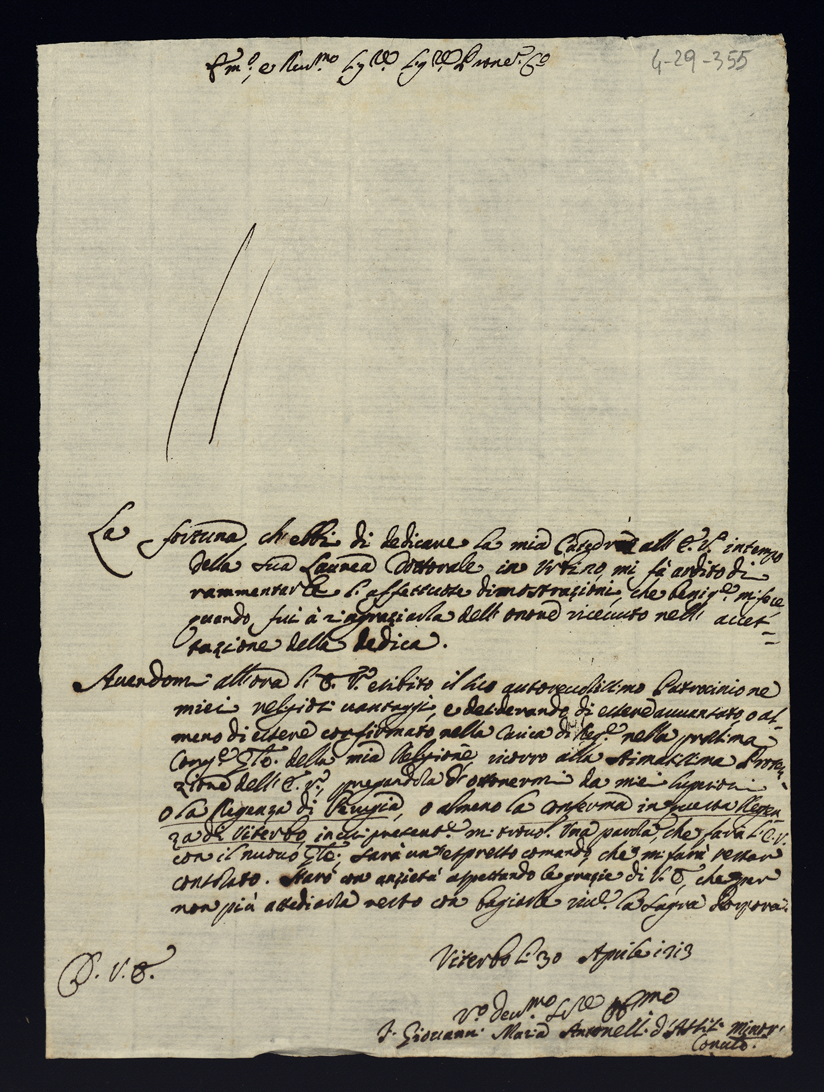 Em.o, e Reu.mo Sig.re Sig.re Prone Co
4-29-355
La fortuna, ch'ebbi di dedicare la mia Catedra all'E.V. in tempo
della sua Laurea Dottorale in Urbino, mi fà ardito di
rammentarle l'affettuose dimostrazioni, che benig.e mi fece
quando fui à ringraziarla dell'onore riceuuto nell'accet=
tazione della dedica.
Auendomi all'ora l'E.V. esibito il suo autoreuolissimo Patrocinio ne
miei religiosi uantaggi, e desiderando di essere auuantato, o al=
meno di essere confirmato nella Carica di Reg.e nella prossima
Cong.e Gle. della mia Religione, ricorro alla stimatissima Prote=
zione dell'E.V. pregandola di ottenermi da miei superiori
o la Regenza di Perugia, o almeno la conferma in questa Regen
za di Viterbo, in cui present.e mi trouo. Una parola, che farà l'E.V.
con il nuouo Gle, sarà un'espresso comando, che mi farà restar
consolato. Starò con ansietà aspettando le grazie di V.E., che per
non più attediarla resto con bagiarle la Sagra Porpora.
Viterbo li 30 Aprile 1713
D. V. E.
V.o deu.mo
F. Giouanni Maria Antonelli d' Minor
Conu.le.